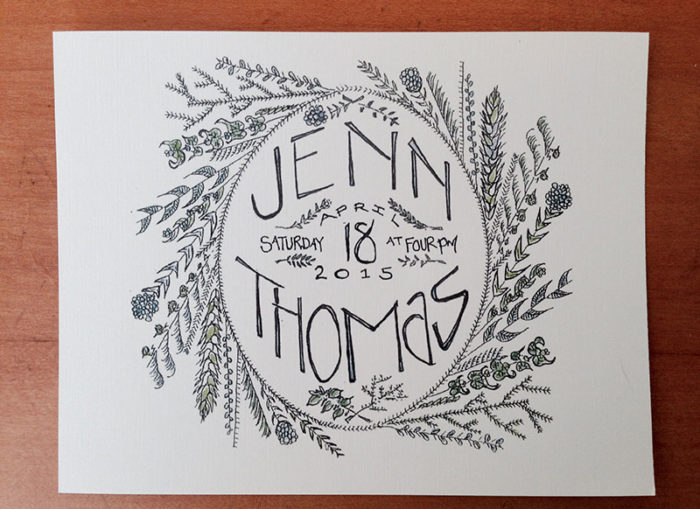 JENN
APRIL
SATURDAY 18 AT FOUR PM
2015
THOMAS